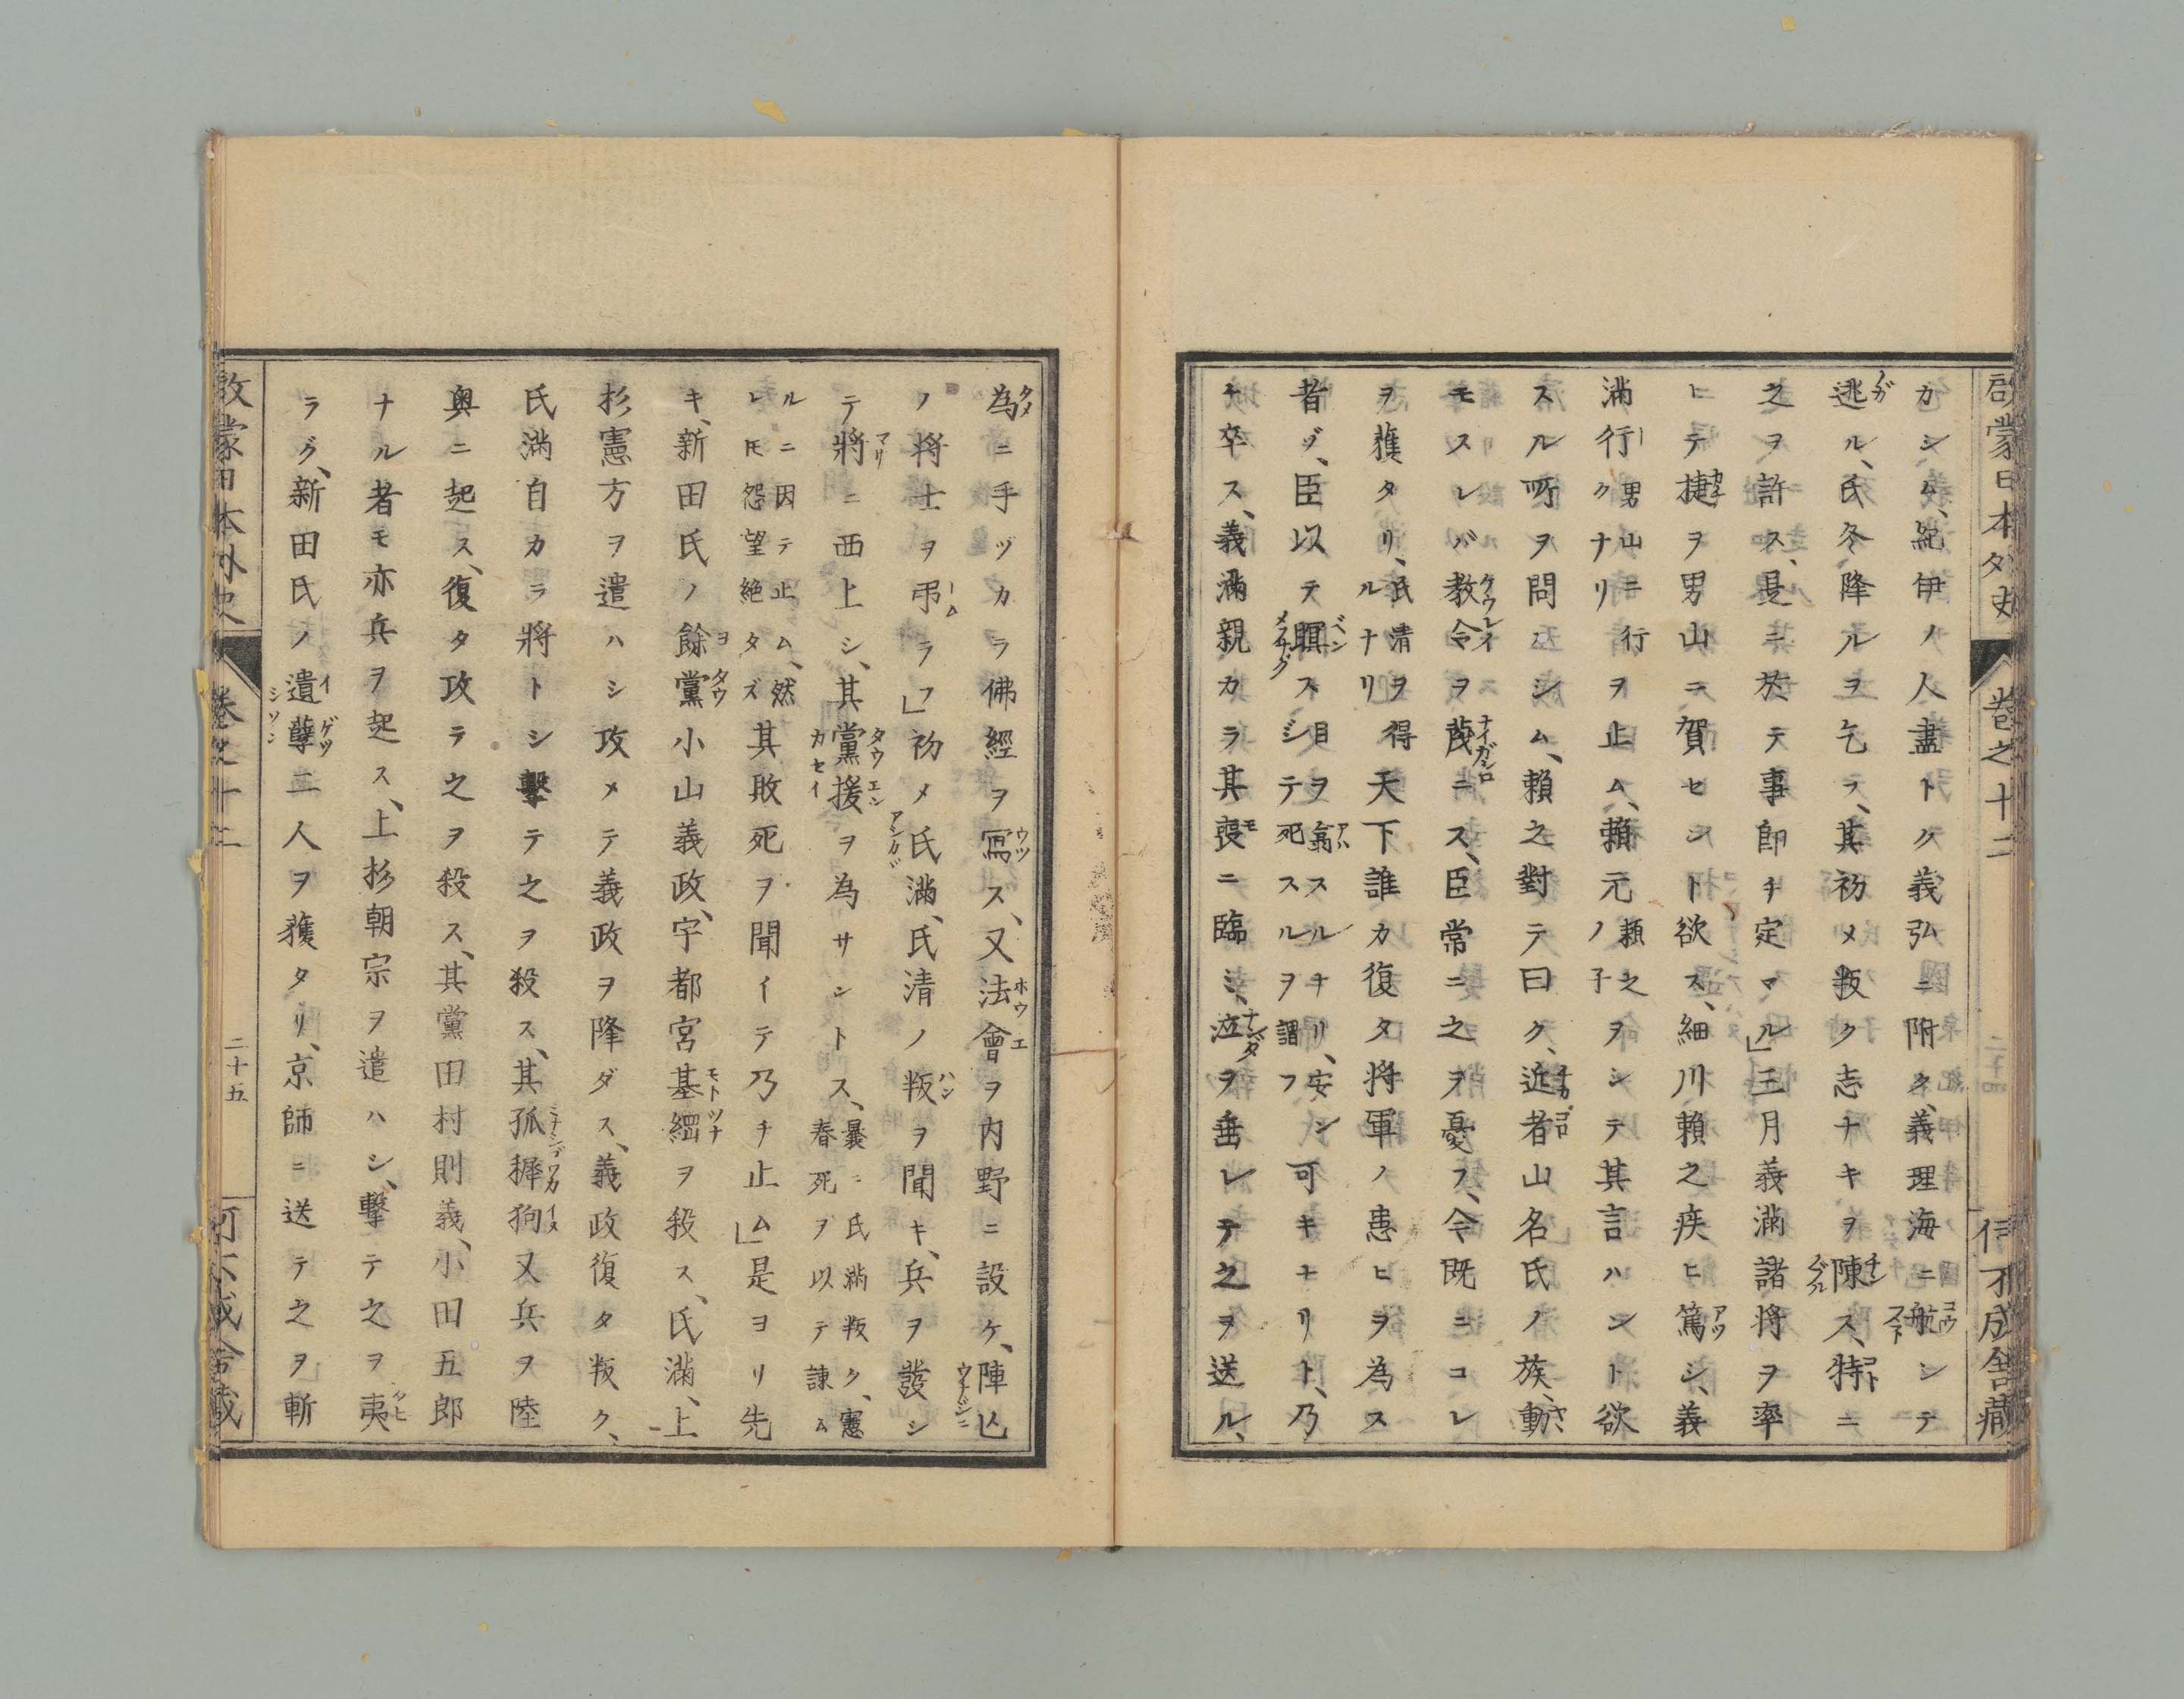 啓蒙日本外史 卷之十二 何不成舍藏
カシム、紀伊ノ人盡トク義弘ニ附ク、義理海ニ航シテ
逃ル、氏冬降ルヲ乞フ、其初メ叛ク志ナキヲ陳ス、特ニ
之ヲ許ス、是ニ於テ事卽チ定マル」三月義滿諸將ヲ率
ヒテ捷ヲ男山ニ賀セント欲ス、細川賴之疾ヒ篤シ、義
滿行男山ニ行クナリヲ止ム、賴元賴之ノ子ヲシテ其言ハント欲
スル所ヲ問ハシム、賴之對テ曰ク、近者山名氏ノ族、動
モスレバ教令ヲ蔑ニス、臣常ニ之ヲ憂フ、今既ニコレ
ヲ獲タリ、氏清ヲ得ルナリ天下誰カ復タ將軍ノ患ヒヲ為ス
者ゾ、臣以テ瞑ス目ヲ翕スルナリ、安ンジテ死スルヲ謂フ可キナリト、乃
チ卒ス、義滿親カラ其喪ニ臨ミ、泣ヲ垂レテ之ヲ送ル、
為ニ手ヅカラ佛經ヲ寫ス、又法會ヲ内野ニ設ケ、陣亾
ノ將士ヲ弔ラフ」初メ氏滿、氏清ノ叛ヲ聞キ、兵ヲ發シ
テ將ニ西上シ、其黨援ヲ為サントス、曩ニ氏滿叛ク、憲春死ヲ以テ諫ム
ルニ因テ止ム、然レ𪜈怨望絶タズ其敗死ヲ聞イテ乃チ止ム」是ヨリ先
キ、新田氏ノ餘黨小山義政、宇都宮基綱ヲ殺ス、氏滿、上
杉憲方ヲ遣ハシ攻メテ義政ヲ降ダス、義政復タ叛ク、
氏滿自カラ將トシ擊テ之ヲ殺ス、其孤犀狗又兵ヲ陸
奥ニ起ス、復タ攻ラ之ヲ殺ス、其黨田村則義、小田五郎
ナル者モ亦兵ヲ起ス、上杉朝宗ヲ遣ハシ、擊テ之ヲ夷
ラグ、新田氏ノ遺孽二人ヲ獲タリ、京師ニ送テ之ヲ斬
啓蒙日本外史 卷之十二 二十五 何不成舍藏